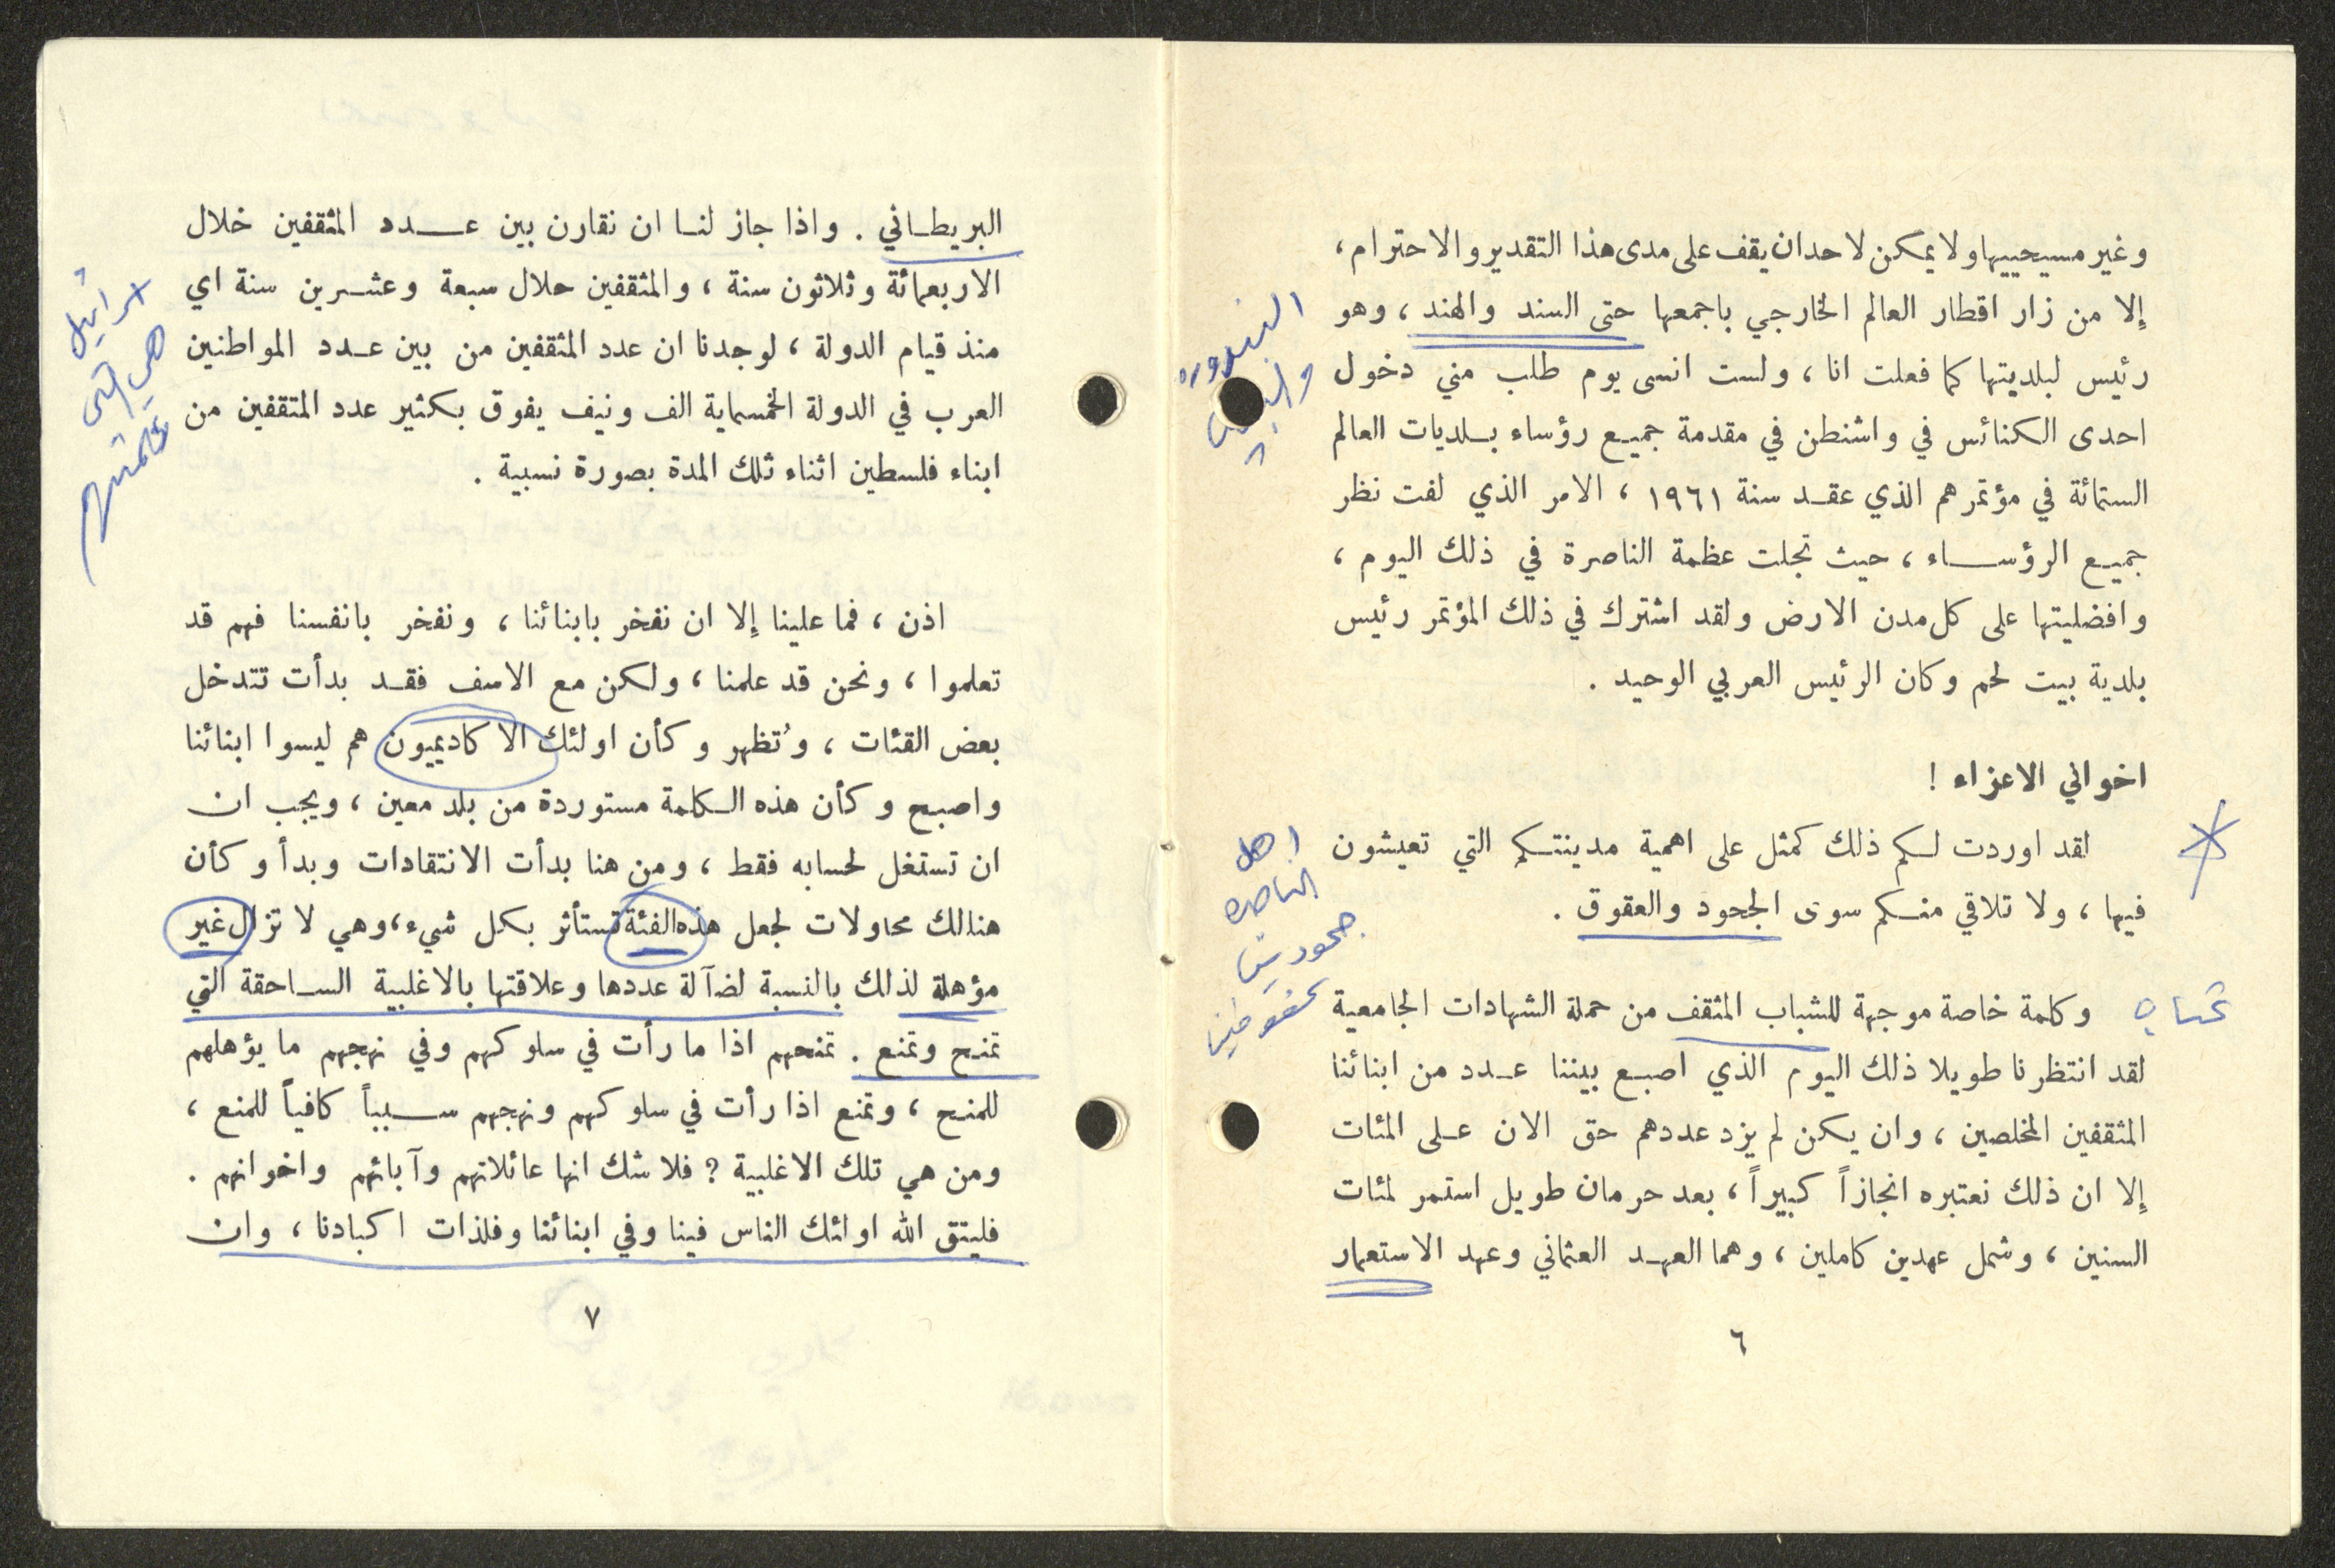 وغير مسيحييها ولا يمكن لاحد ان يقف على مدى هذا التقدير والاحترام،
إلا من زار اقطار العالم الخارجي باجمعها حتى السند والهند، وهو
رئيس لبلديتها كما فعلت انا، ولست انسى يوم طلب مني دخول
احدى الكنائس في واشنطن في مقدمة جميع رؤساء بلديات العالم
الستمائة في مؤتمرهم الذي عقد سنة ١٩٦١، الامر الذي لفت نظر
جميع الرؤساء، حيث تجلت عظمة الناصرة في ذلك اليوم،
وافضليتها على كل مدن الارض ولقد اشترك في ذلك المؤتمر رئيس
بلدية بيت لحم وكان الرئيس العربي الوحيد.
اخواني الاعزاء!
لقد اوردت لكم ذلك كمثل على اهمية مدينتكم التي تعيشون
فيها، ولا تلاقي منكم سوى الجحود والعقوق.
اهل
الناصرة
جحودين
وكلمة خاصة موجهة للشباب المثقف من حملة الشهادات الجامعية
لقد انتظرنا طويلا ذلك اليوم الذي اصبع بيننا عدد من ابنائنا
المثقفين المخلصين، وان يكن لم يزد عددهم حق الان على المئات
إلا ان ذلك نعتبره انجازاً كبيراً، بعد حرمان طويل استمر لمئات
السنين، وشمل عهدين كاملين، وهما العهد العثماني وعهد الاستعمار
٦
البريطاني. واذا جاز لنا ان نقارن بين عدد المثقفين خلال
الاربعمائة وثلاثون سنة، والمثقفين حلال سبعة وعشرين سنة اي
منذ قيام الدولة، لوجدنا ان عدد المثقفين من بين عدد المواطنين
العرب في الدولة الخمسماية الف ونيف يفوق بكثير عدد المتقفين من
ابناء فلسطين اثناء تلك المدة بصورة نسبية.
اسرائيل
هي التي
علمتهم
اذن، فما علينا إلا ان نفخر بابنائنا، ونفخر بانفسنا فهم قد
تعلموا، ونحن قد علمنا، ولكن مع الاسف فقد بدأت تتدخل
بعض القئات، وتُظهر وكأن اولئك الاكاديميون هم ليسوا ابنائنا
واصبح وكأن هذه الكلمة مستوردة من بلد معين، ويجب ان
ان تستغل لحسابه فقط، ومن هنا بدأت الانتقادات وبدأ وكأن
هنالك محاولات لجعل هذه الفئة تستأثر بكل شيء، وهي لا تزال غير
مؤهلة لذلك بالنسبة لضآلة عددها وعلاقتها بالاغلبية الساحقة التي
تمنح وتمنع. تمنحهم اذا ما رأت في سلوكهم وفي نهجهم ما يؤهلهم
للمنح، وتمنع اذا رأت في سلوكهم ونهجهم سبباً كافياً للمنع،
ومن هي تلك الاغلبية؟ فلا شك انها عائلاتهم وآبائهم واخوانهم.
فليتق الله اولئك الناس فينا وفي ابنائنا وفلذات اكبادنا، وان
٧